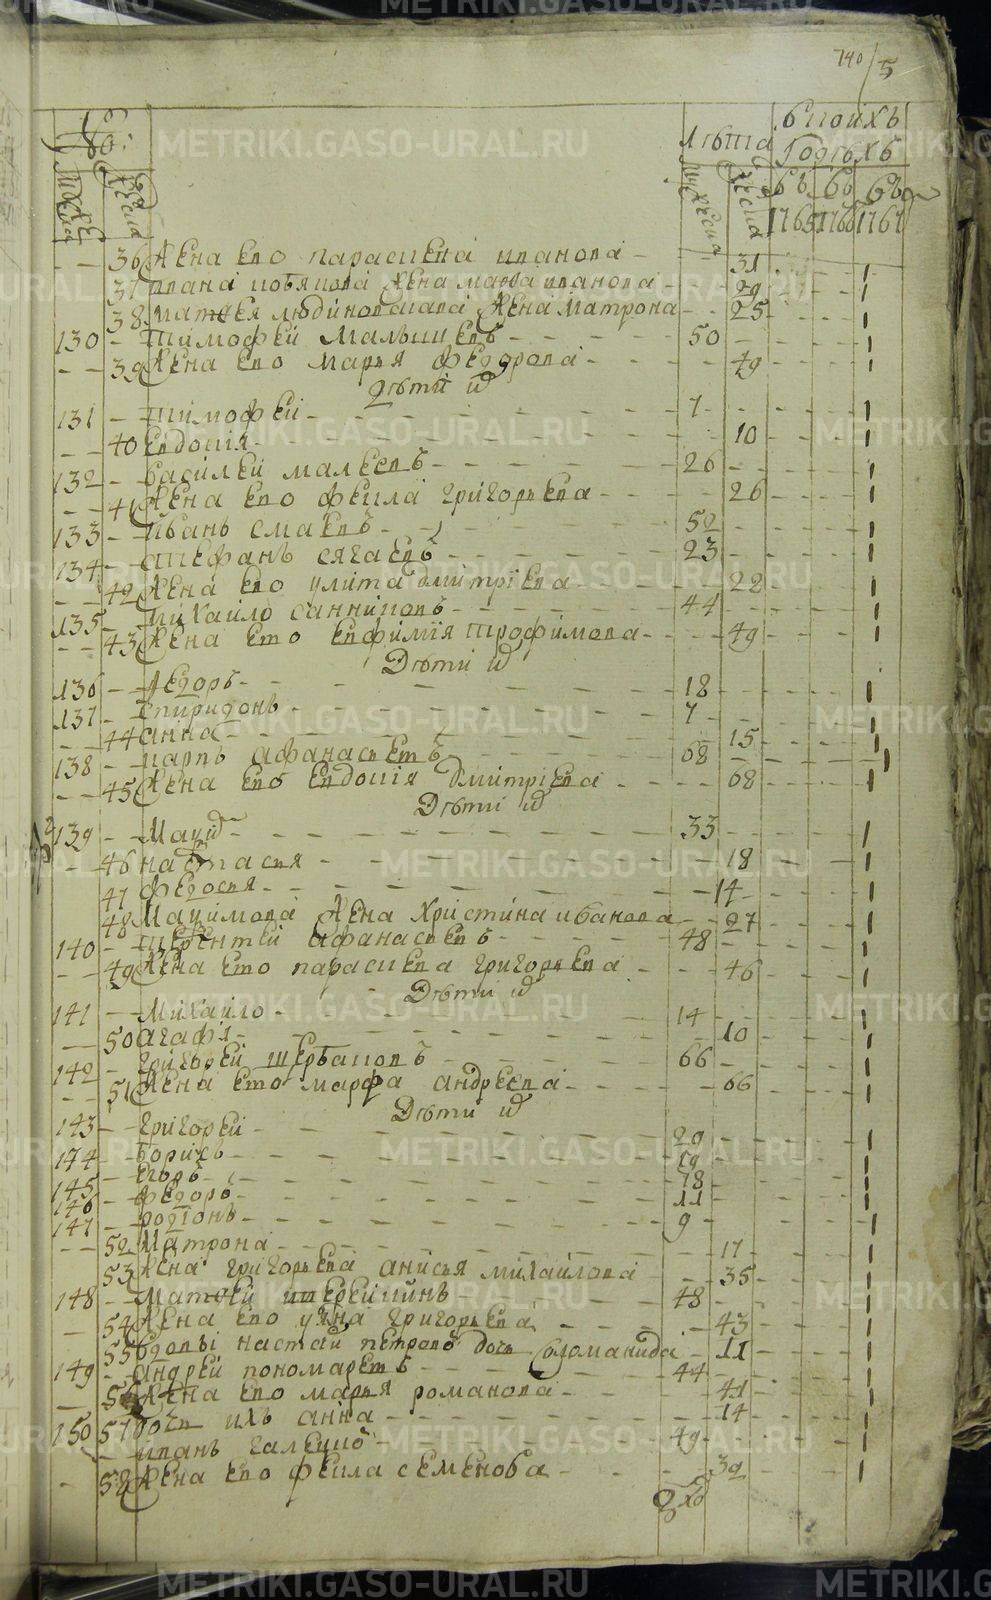 740/5
№:
мужеска
женска
лѣта
мужеска
женска
въ коихъ
годѣхъ
въ въ въ
1765 1766 1767
36 жена ево парасковя иванова 31
37 ивана жена марѳа иванова 29
38 матфея жена матрона 25
130 тимофей малышевъ 50
39 жена ево марья федорова 49
дѣти их
131 тимофей 7
40 евдокія 10
132 василей малеевъ 26
41 жена ево фекла григорьева 26
133 иванъ смаевъ 50
134 стефанъ сягаевъ 23
42 жена ево улита дмитріева 22
135 михайло санниковъ 44
43 жена ево евфимія трофимова 49
дѣти их
136 федоръ 18
137 спиридонъ 7
44 анна 15
138 карпъ афанасьевъ 68
45 жена ево евдокія дмитріева 68
дѣти их
139 33
46 настасья 18
47 федосья 14
48 жена христина иванова 27
140 терентей афанасьевъ 48
49 жена ево параскева григорьева 46
дѣти их
141 михайло 14
50 агафія 10
142 григорей щербаковъ 66
51 жена ево марфа андреева 66
дѣти их
143 григорей 29
174 борисъ 19
145 егоръ 18
146 федоръ 11
147 родіонъ 9
52 матрона 17
53 жена григорьева анисья михайлова 35
148 матфей 48
54 жена ево григорьева 43
55 вдовы дочь соломанида 11
149 андрей пономаревъ 44
56 жена ево марья романова 41
57 дочь ихъ анна 14
150 иванъ 49
58 жена ево фекла семенова 39